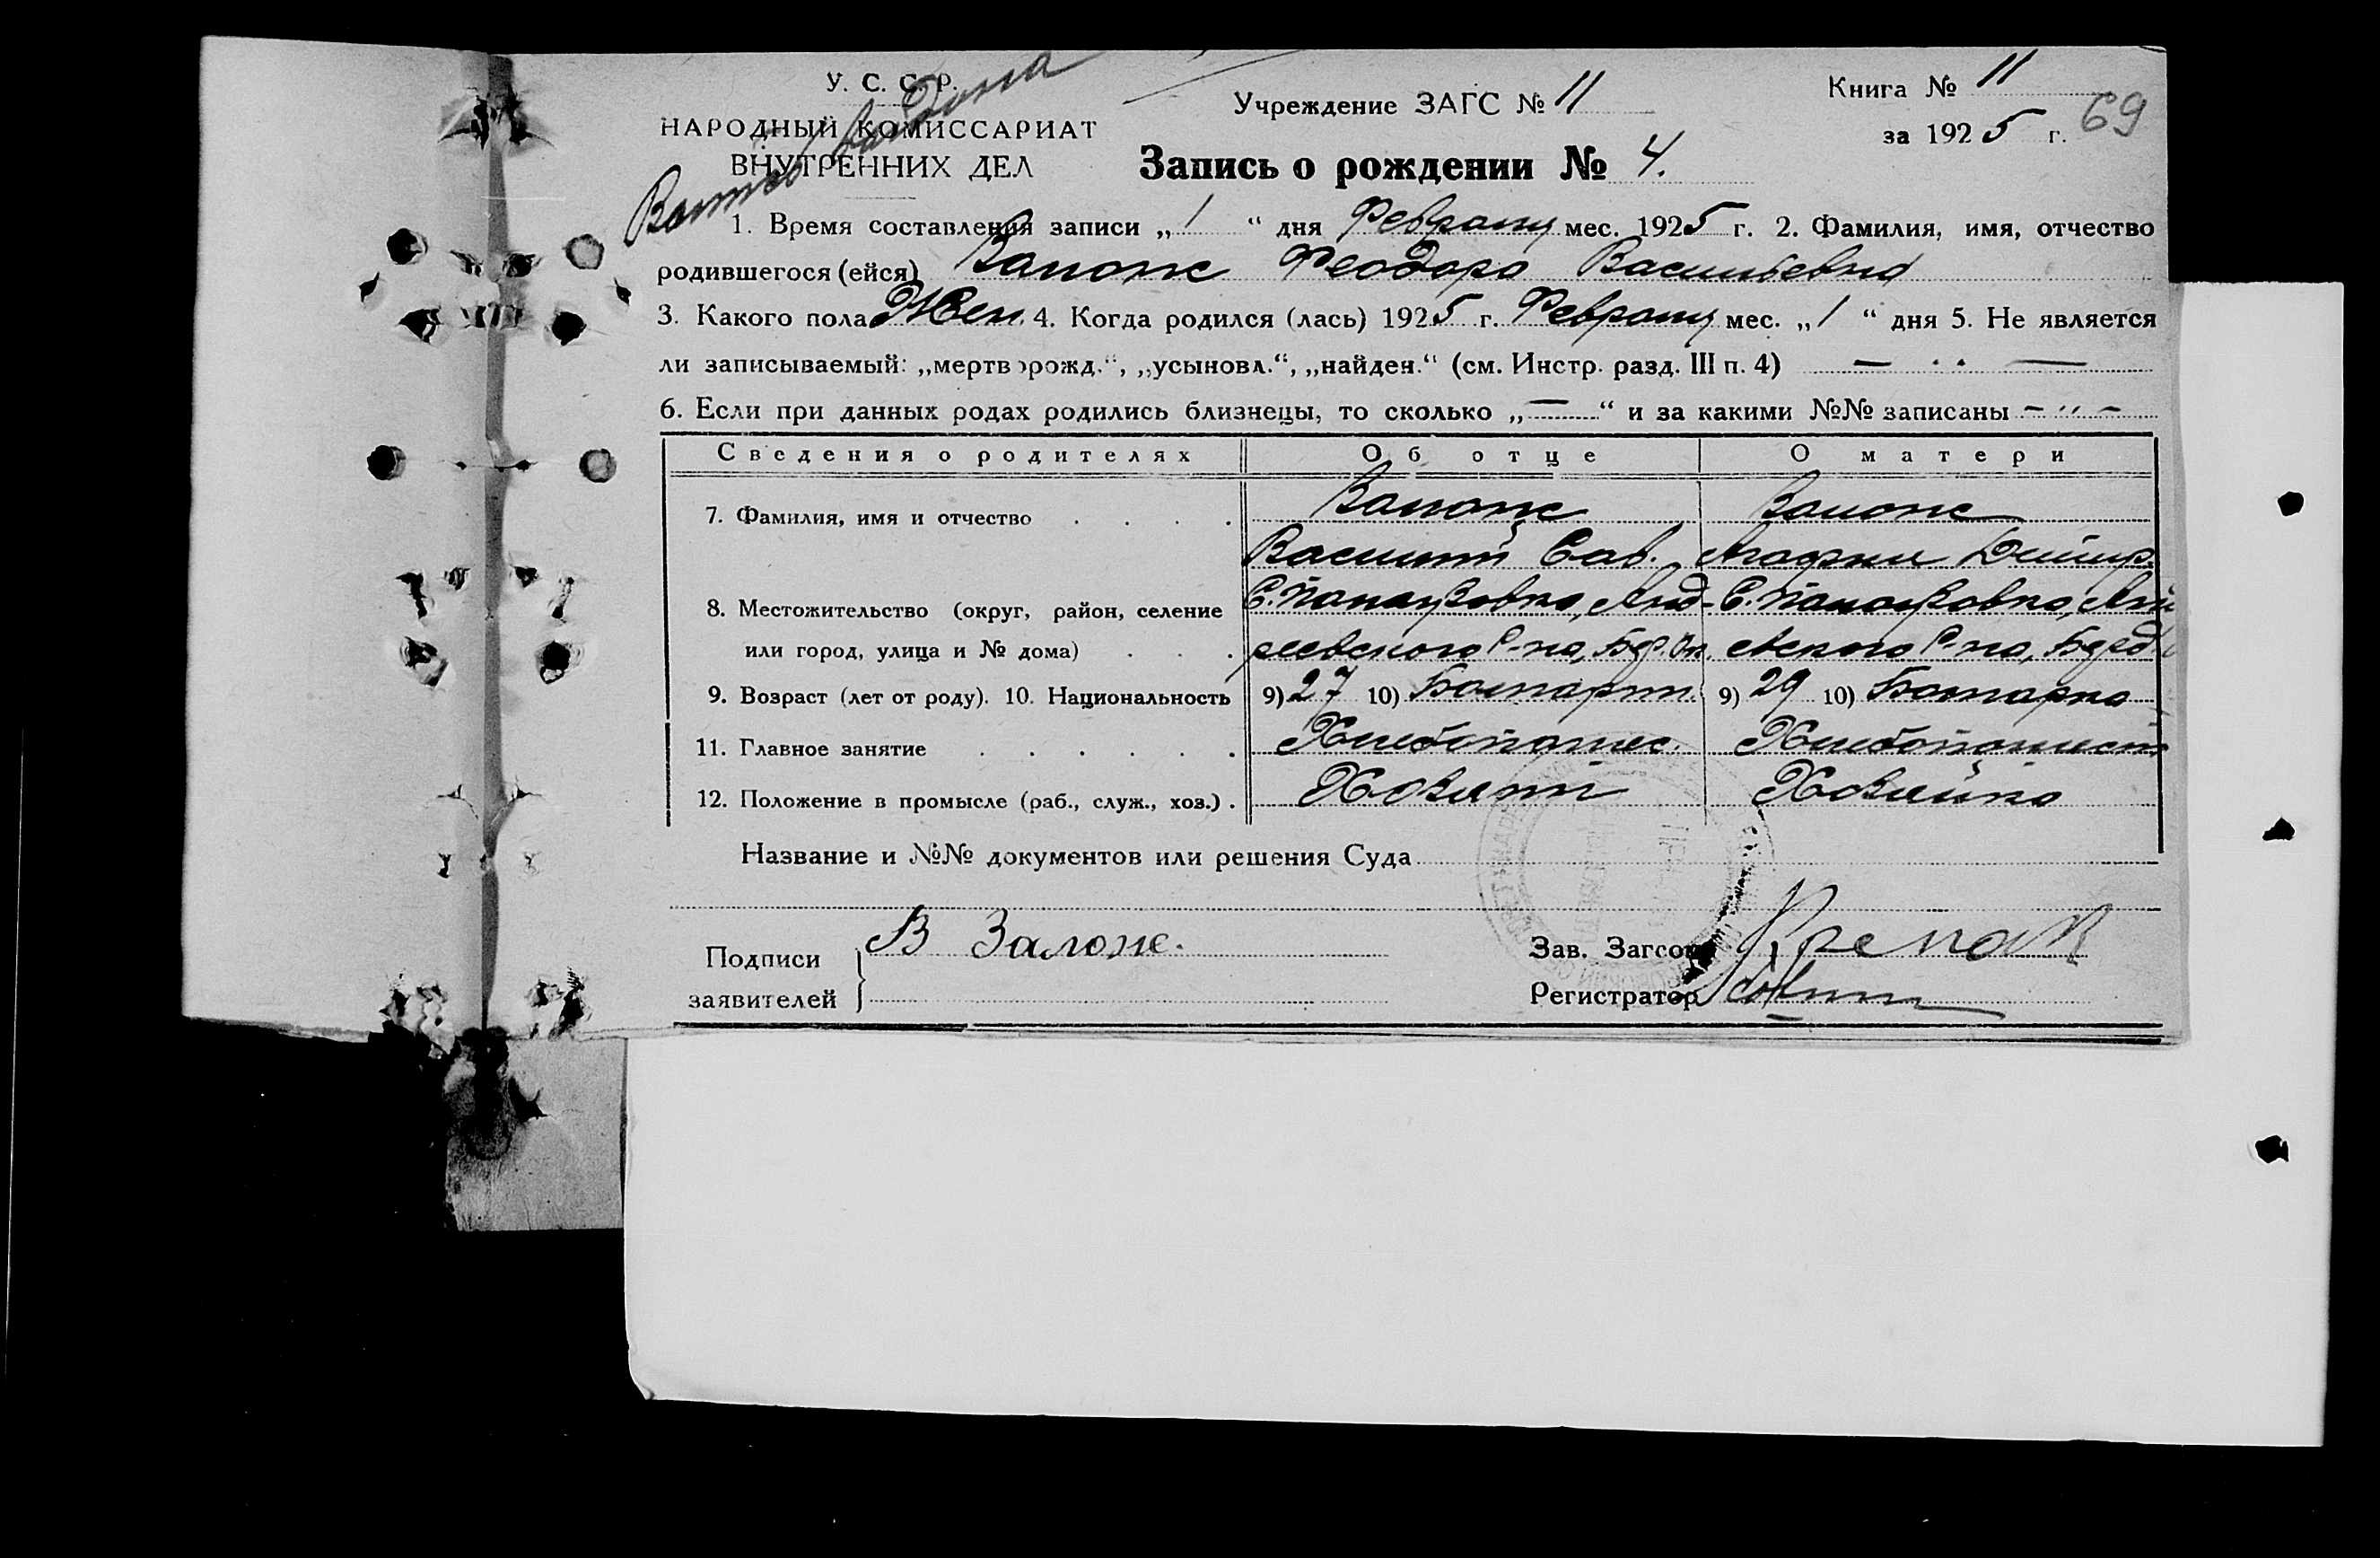 У. С. С. Р.
НАРОДНЫЙ КОМИССАРИАТ
ВНУТРЕННИХ ДЕЛ
Учреждение ЗАГС № 11
Книга № 11
за 1925 г. 69
Запись о рождении № 4.
1. Время составления записи „1“ дня Февраля мес. 1925 г. 2. Фамилия, имя, отчество
родившегося (ейся) Залож Феодора Васильевна
3. Какого пола Жен. 4. Когда родился (лась) 1925 г. Февраля мес. „1“ дня 5. Не является
ли записываемый: „мертворожд.“, „усыновл.“, „найден.“ (см. Инстр. разд. III п. 4) — „ —
6. Если при данных родах родились близнецы, то сколько „—“ и за какими №№ записаны - „ -
Сведения о родителях Об отце О матери
7. Фамилия, имя и отчество . . . . Залож Залож
Василий Сав. Агафия Димитр.
8. Местожительство (округ, район, селение С. Анд- С.
или город, улица и № дома) . . . реевского Р-на, Бер. Ок. евского Р-на, Берд.
9. Возраст (лет от роду). 10. Национальность 9) 27 10) Болгарин 9) 29 10) Болгарка
11. Главное занятие . . . . . . Хлебопашес. Хлебопашест
12. Положение в промысле (раб., служ., хоз.) . Хозяин Хозяйка
Название и №№ документов или решения Суда
Подписи В Залож.
заявителей
Зав. Загсом
Регистратор